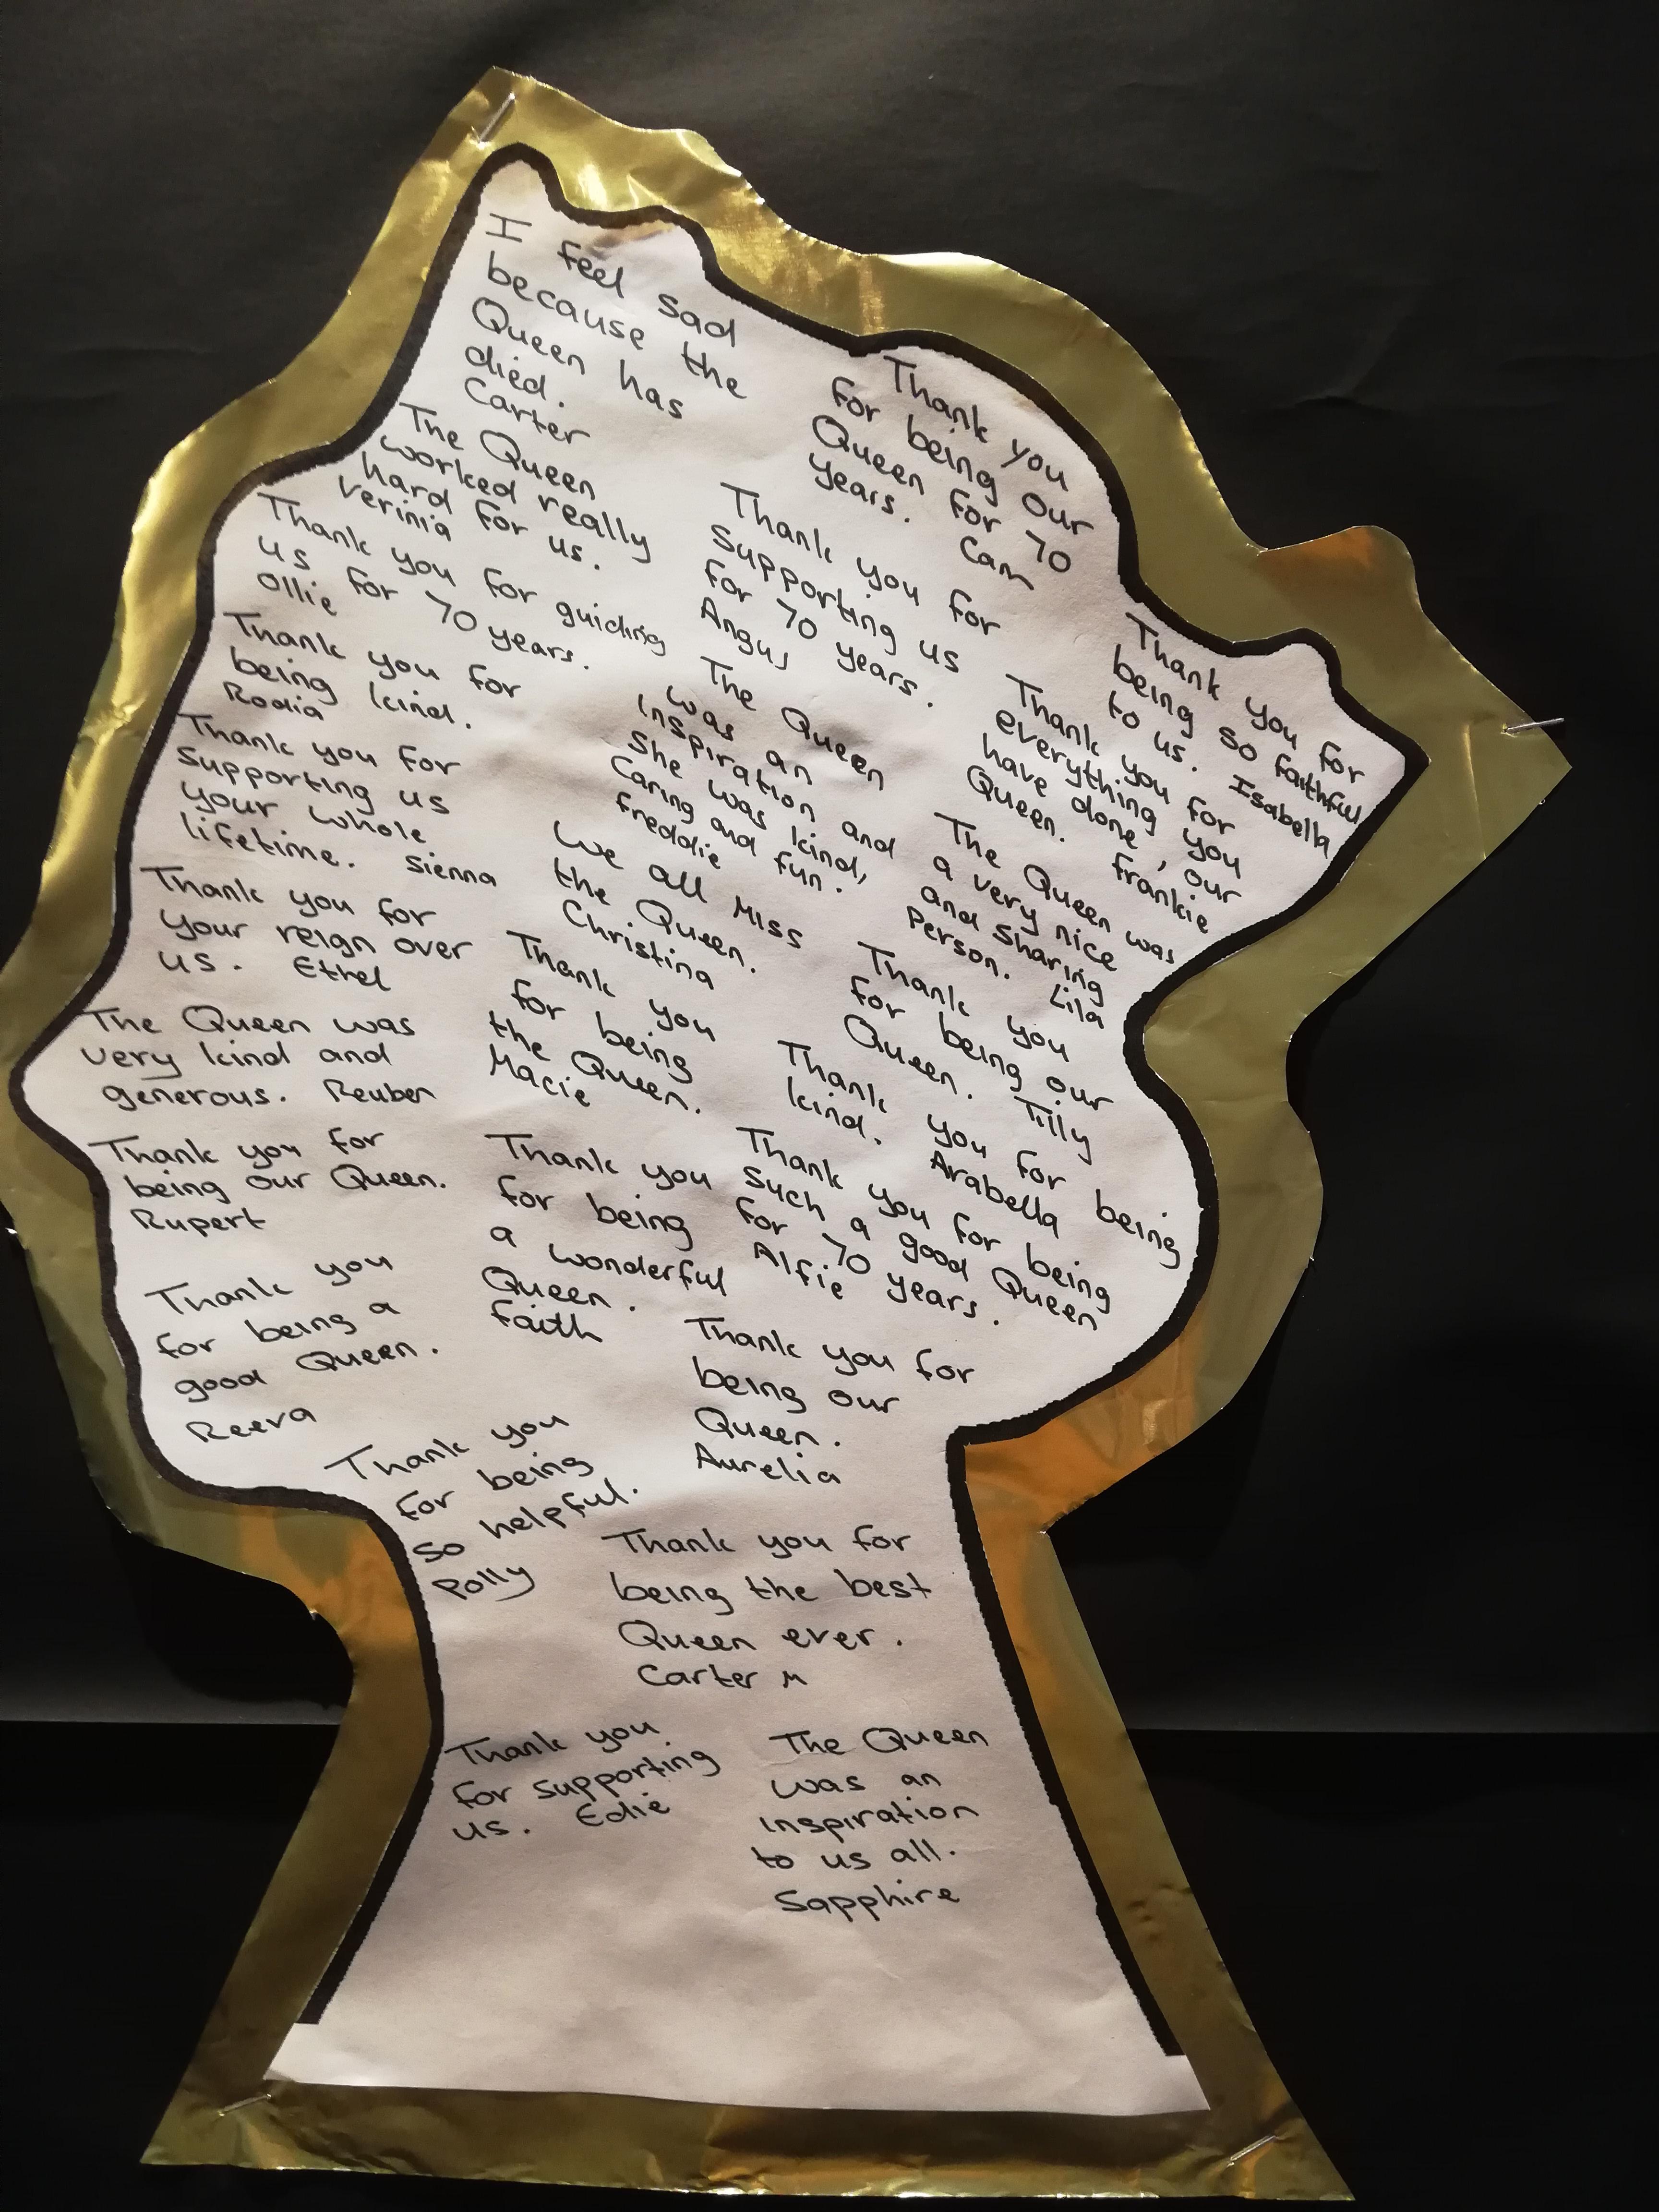 I feel sad
because the
Queen has
died.
Carter
The Queen
worked really
hard for us.
Verinia
Thank you for guiding
us for 70 years.
Ollie
Thank you for
being kind.
Rodia
Thank you for
Supporting us
your whole
lifetime. Sienna
Thank you for
your reign over
us. Ethel
The Queen was
very kind and
generous. Reuben
Thank you for
being our Queen.
Rupert
Thank you
for being a
good Queen.
Reeva
Thank you
for being our
Queen for 70
years. Cam
Thank you for
Supporting us
for 70 years.
Angus
The Queen
was an
inspiration and
She was kind,
Caring and fun.
Freddie
We all miss
the Queen.
Christina
Thank you
for being
the Queen.
Macie
Thank you
for being
a wonderful
Queen.
Faith
Thank you for
being so faithful
to us. Isabella
Thank you for
everything you
have done, our
Queen. Frankie
The Queen was
a very nice
and Sharing
Person. Lila
Thank you
for being our
Queen. Tilly
Thank you for being
kind. Arabella
Thank you for being
Such a good Queen
for 70 years.
Alfie
Thank you for
being our
Queen.
Aurelia
Thank you
for being
so helpful.
Polly
Thank you for
being the best
Queen ever.
Carter M
Thank you
for supporting
us. Edie
The Queen
was an
inspiration
to us all.
Sapphire